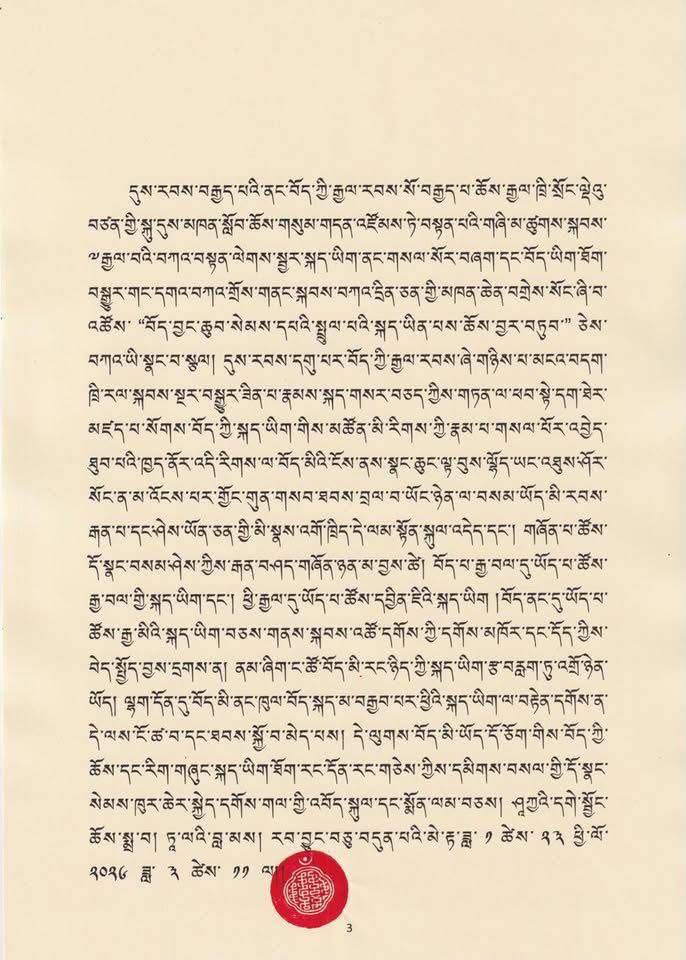 དུས་རབས་བརྒྱད་པའི་ནང་བོད་ཀྱི་རྒྱལ་རབས་སོ་བརྒྱད་པ་ཆོས་རྒྱལ་ཁྲི་སྲོང་ལྡེའུ་
བཙན་གྱི་སྐུ་དུས་མཁན་སློབ་ཆོས་གསུམ་གདན་འཛོམས་ཏེ་བསྟན་པའི་གཞི་མ་ཚུགས་སྐབས་
༧རྒྱལ་བའི་བཀའ་བསྟན་ལེགས་སྦྱར་སྐད་ཡིག་ནང་གསལ་སོར་བཞག་དང་བོད་ཡིག་ཐོག་
བསྒྱུར་གང་དགའ་བཀའ་གྲོས་གནང་སྐབས་བཀའ་དྲིན་ཅན་གྱི་མཁན་ཆེན་བགྲེས་སོང་ཞི་བ་
འཚོས་ “བོད་བྱང་ཆུབ་སེམས་དཔའི་སྤྲུལ་པའི་སྐད་ཡིན་པས་ཆོས་བྱར་བཏུབ་” ཅེས་
བཀའ་ཡི་སྣང་བ་སྩལ། དུས་རབས་དགུ་པར་བོད་ཀྱི་རྒྱལ་རབས་ཞེ་གཉིས་པ་མངའ་བདག་
ཁྲི་རལ་སྐབས་སྔར་བསྒྱུར་ཟིན་པ་རྣམས་སྐད་གསར་བཅད་ཀྱིས་གཏན་ལ་ཕབ་སྟེ་དག་ཐེར་
མཛད་པ་སོགས་བོད་ཀྱི་སྐད་ཡིག་གིས་མཚོན་མི་རིགས་ཀྱི་རྣམ་པ་གསལ་པོར་འབྱེད་
ཐུབ་པའི་ཁྱད་ནོར་འདི་རིགས་ལ་བོད་མིའི་ངོས་ནས་སྣང་ཆུང་ལྟ་བུས་ལྷོད་ཡང་འཐུས་ཤོར་
སོང་ན་མ་འོངས་པར་གྱོང་གུན་གསབ་ཐབས་བྲལ་བ་ཡོང་ཉེན་ལ་བསམ་ཡོད་མི་རབས་
རྒན་པ་དང་ཤེས་ཡོན་ཅན་གྱི་མི་སྣས་འགོ་ཁྲིད་དེ་ལམ་སྟོན་སྐུལ་འདེད་དང་། གཞོན་པ་ཚོས་
དོ་སྣང་བསམ་ཤེས་ཀྱིས་རྒན་བཤད་གཞོན་ཉན་མ་བྱས་ཚེ། བོད་པ་རྒྱ་བལ་དུ་ཡོད་པ་ཚོས་
རྒྱ་བལ་གྱི་སྐད་ཡིག་དང་། ཕྱི་རྒྱལ་དུ་ཡོད་པ་ཚོས་དབྱིན་ཇིའི་སྐད་ཡིག །བོད་ནང་དུ་ཡོད་པ་
ཚོས་རྒྱ་མིའི་སྐད་ཡིག་བཅས་གནས་སྐབས་འཚོ་དགོས་ཀྱི་དགོས་མཁོར་དང་དོད་ཀྱིས་
བེད་སྤྱོད་བྱས་དྲགས་ན། ནམ་ཞིག་ང་ཚོ་བོད་མི་རང་ཉིད་ཀྱི་སྐད་ཡིག་རྩ་བརླག་ཏུ་འགྲོ་ཉེན་
ཡོད། ལྷག་དོན་དུ་བོད་མི་ནང་ཁུལ་བོད་སྐད་མ་བརྒྱབ་པར་ཕྱིའི་སྐད་ཡིག་ལ་བརྟེན་དགོས་ན་
དེ་ལས་ངོ་ཚ་བ་དང་ཐབས་སྐྱོ་བ་མེད་པས། དེ་ལུགས་བོད་མི་ཡོད་དོ་ཅོག་གིས་བོད་ཀྱི་
ཆོས་དང་རིག་གཞུང་སྐད་ཡིག་ཐོག་རང་དོན་རང་གཅེས་ཀྱིས་དམིགས་བསལ་གྱི་དོ་སྣང་
སེམས་ཁུར་ཆེར་སྐྱེད་དགོས་གལ་གྱི་འབོད་སྐུལ་དང་སྨོན་ལམ་བཅས། ཤཱཀྱའི་དགེ་སློང་
ཆོས་སྨྲ་བ། ཏཱ་ལའི་བླ་མས། རབ་བྱུང་བཅུ་བདུན་པའི་མེ་རྟ་ཟླ་ ༡ ཚེས་ ༢༣ ཕྱི་ལོ་
༢༠༢༦ ཟླ་ ༣ ཚེས་ ༡༡ ལ།།
3